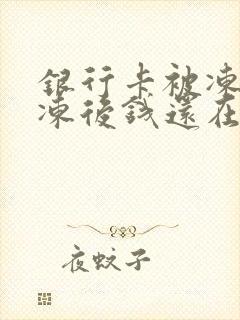 銀行卡被凍
凍後錢還在
夜蚊子